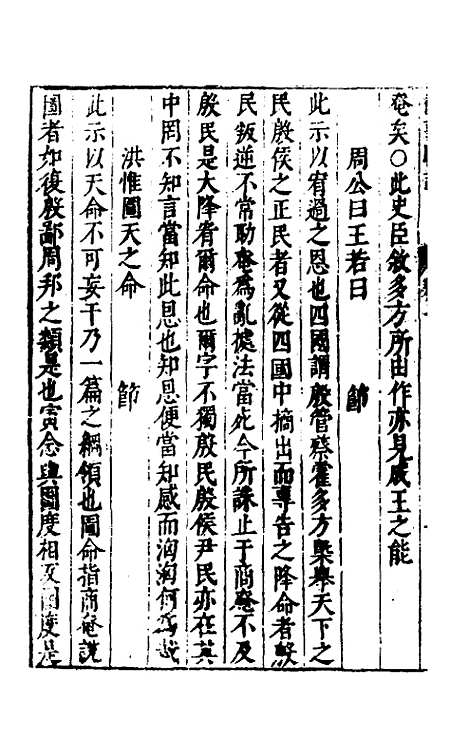 奄矣○此史臣敘多方所由作亦見成王之能
周公曰王若曰　節
此示以宥過之恩也四國謂殷管蔡霍多方槩舉天下之
民殷侯之正民者又從四國中摘出而專告之降命者殷
民叛逆不常助奄為亂據法當死今所誅止于商奄不及
殷民是大降宥爾命也爾字不獨殷民殷侯尹民亦在其
中罔不知言當知此恩也知恩便當知感而洶洶何為哉
洪惟圖天之命　節
此示以天命不可妄干乃一篇之綱領也圖命指商奄說
圖者如復殷鄙周邦之類是也寅念與圖度相反圖度是